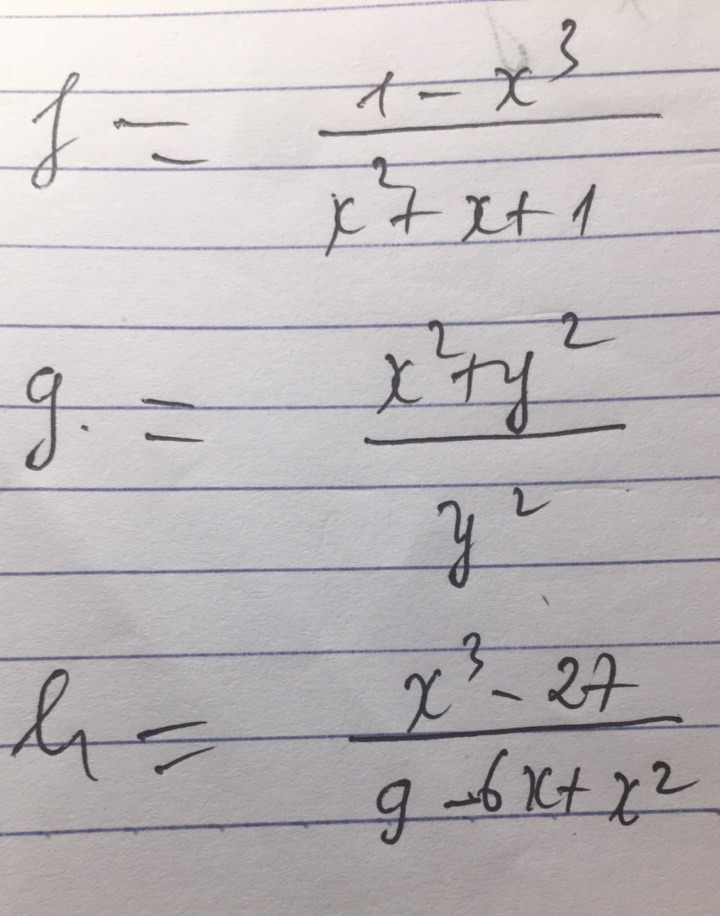 f = \frac{1 - x^3}{x^2 + x + 1}
g. = \frac{x^2 + y^2}{y^2}
h = \frac{x^3 - 27}{9 - 6x + x^2}